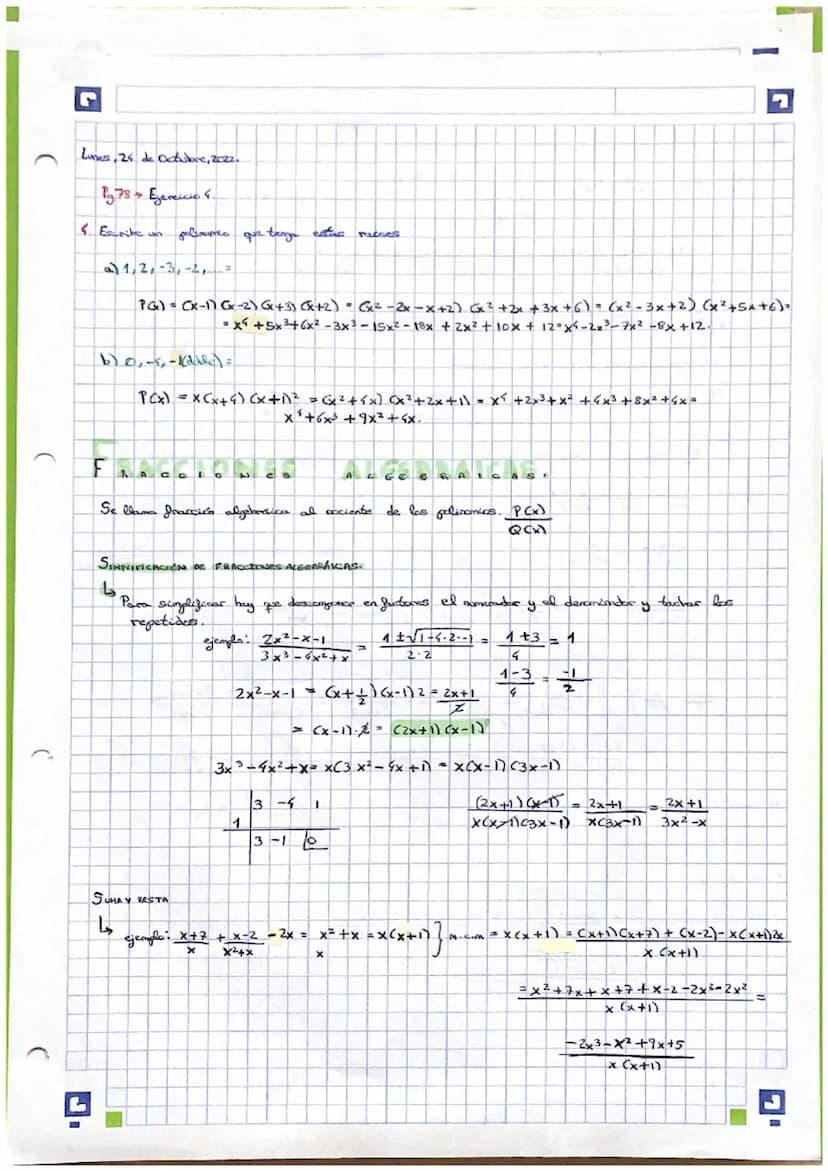 Lunes, 24 de Octubre, 2022.
Pg 78 → Ejercicio 4.
4. Escribe un polinomio que tenga estas raices
a) 1, 2, -3, -2, ... =
P(x) = (x-1) (x-2) (x+3) (x+2) = (x² -2x -x +2) (x² +2x +3x +6) = (x² -3x +2) (x² +5x +6) =
= x⁴ +5x³ +6x² -3x³ -15x² -18x +2x² +10x + 12 = x⁴ -2x³ -7x² -8x +12.
b) 0, -4, -1(doble) =
P(x) = x(x+4) (x+1)² = (x² +4x) (x² +2x +1) = x⁴ +2x³ +x² +4x³ +8x² +4x =
x⁴ +6x³ +9x² +4x.
FRACCIONES ALGEBRAICAS.
Se llama fracción algebraica al cociente de los polinomios. P(x)/Q(x)
SIMPLIFICACIÓN DE FRACCIONES ALGEBRÁICAS.
↳ Para simplificar hay que descomponer en factores el numerador y el denominador y tachar los
repetidos.
ejemplo: (2x²-x-1)/(3x³-4x²+x) = (1±√1-4·2·-1)/(2·2) = (1+3)/4 = 1
(1-3)/4 = -1/2
2x²-x-1 = (x+1/2) (x-1) 2 = (2x+1)/2
= (x-1)·2 = (2x+1) (x-1)
3x³ -4x² +x = x(3x² -4x +1) = x(x-1) (3x-1)
3 -4 1
1
3 -1 0
(2x+1) (x-1)/x(x-1)(3x-1) = 2x+1/x(3x-1) = 2x+1/3x²-x
SUMA Y RESTA
↳ ejemplo: (x+7)/x + (x-2)/(x²+x) - 2x = x² +x = x(x+1) } m.c.m = x(x+1) = ((x+1)(x+7) + (x-2) - x(x+1)2x)/(x(x+1))
x
= (x² +7x +x +7 +x -2 -2x³ -2x²)/(x(x+1)) =
(-2x³ -x² +9x +5)/(x(x+1))